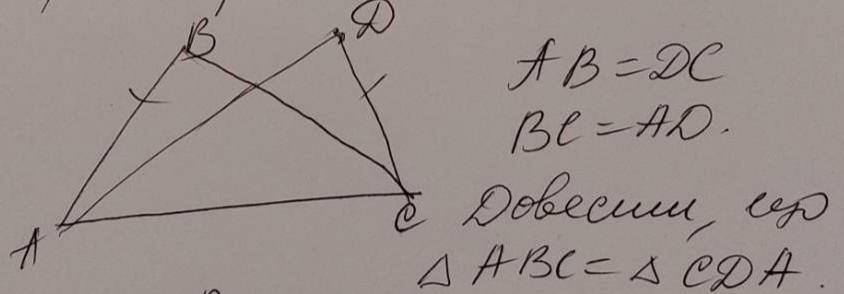 B
D
A
C
AB = DC
BC = AD.
Довести, що
△ ABC = △ CDA.